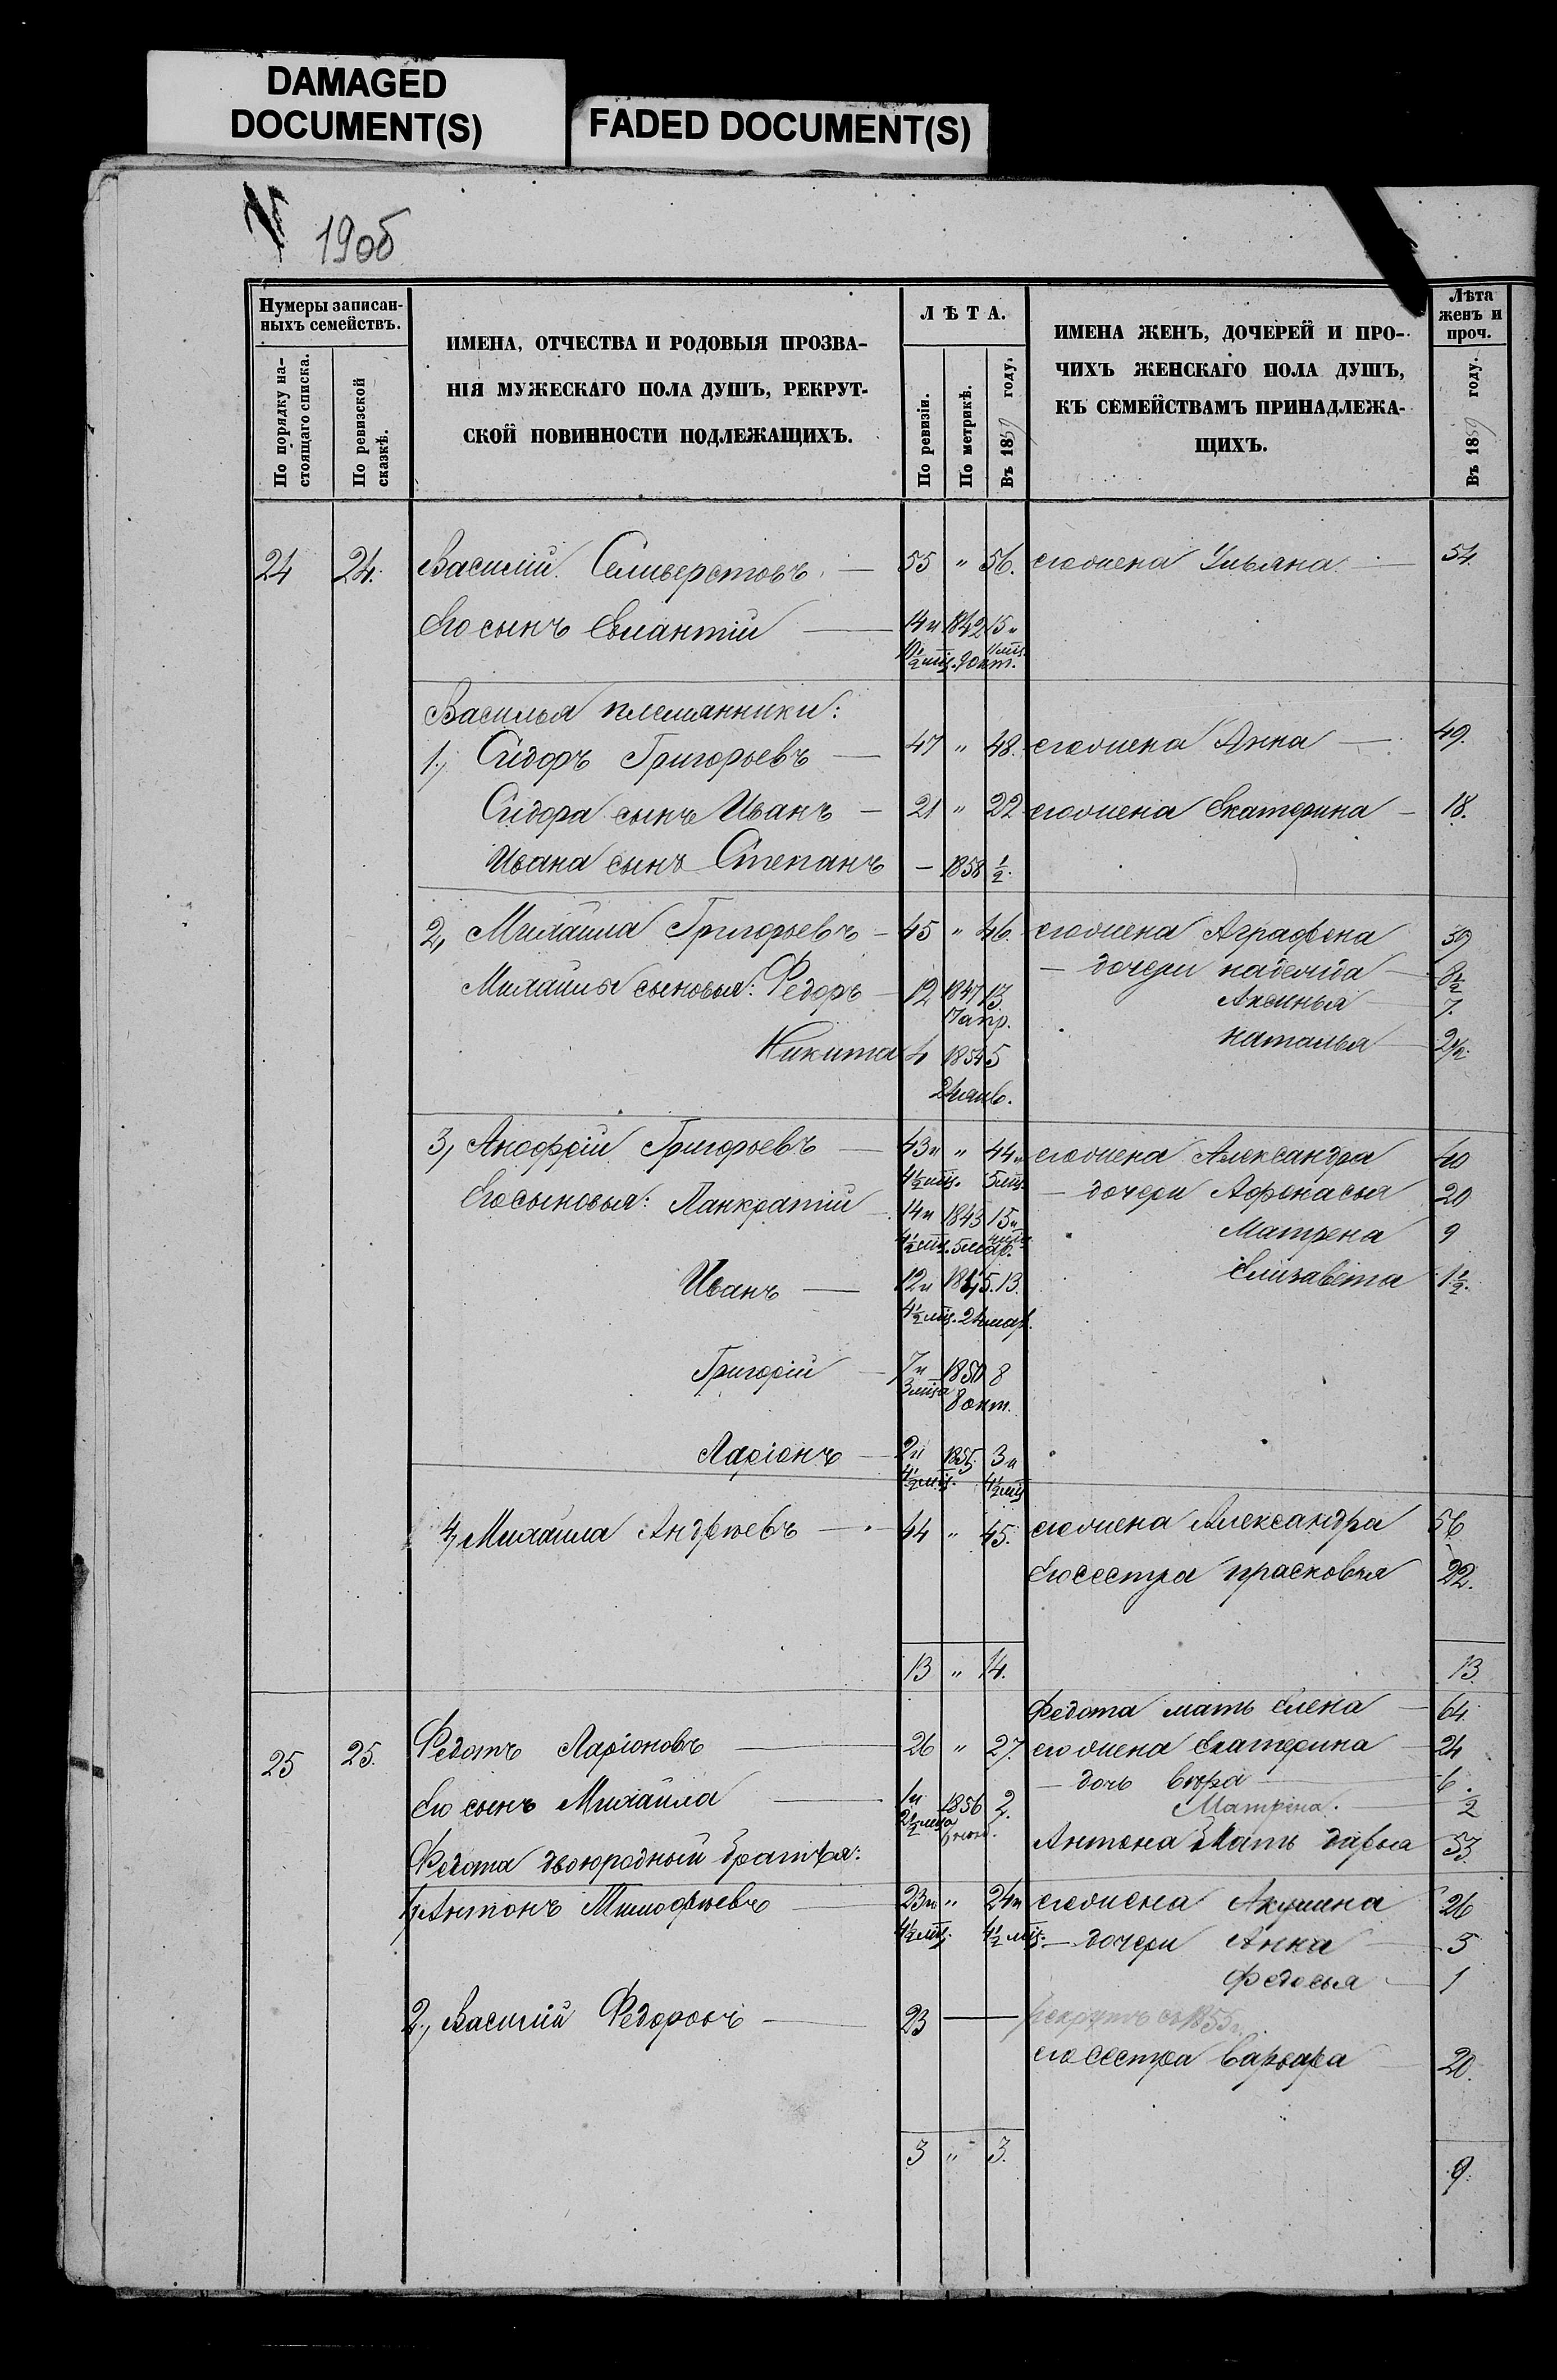 DAMAGED
DOCUMENT(S)
FADED DOCUMENT(S)
190б
Нумеры записан-
ныхъ семействъ.
По порядку на-
стоящаго списка.
По ревизской
сказкѣ.
ИМЕНА, ОТЧЕСТВА И РОДОВЫЯ ПРОЗВА-
НІЯ МУЖЕСКАГО ПОЛА ДУШЪ, РЕКРУТ-
СКОЙ ПОВИННОСТИ ПОДЛЕЖАЩИХЪ.
ЛѢТА.
По ревизіи.
По метрикѣ.
Въ 1859 году.
ИМЕНА ЖЕНЪ, ДОЧЕРЕЙ И ПРО-
ЧИХЪ ЖЕНСКАГО ПОЛА ДУШЪ,
КЪ СЕМЕЙСТВАМЪ ПРИНАДЛЕЖА-
ЩИХЪ.
Лѣта
женъ и
проч.
Въ 1859 году.
24 24. Василій Селиверстовъ. — 55 " 56. его жена Ульяна — 54.
Его сынъ Евлантій — 14 и 1842 15 и
10½ мц. 9 окт. 11 мц.
Василья племянники:
1, Сидоръ Григорьевъ — 47 " 48. его жена Анна — 49.
Сидора сынъ Иванъ — 21 " 22 его жена Екатерина — 18.
Ивана сынъ Степанъ — 1858 ½.
2, Михайла Григорьевъ — 45 " 46. его жена Аграфена 39
— дочери надежда — 8½
Михайлы сыновья: Федоръ — 12 1847 13.
7 апр.
Аксинья — 7.
наталья — 2½.
Никита 4 1854 5
24 янв.
3, Анофрій Григорьевъ — 43 и " 44 и его жена Александра 40
4½ мц. 5 мц. — дочери Афенасья 20
Его сыновья: Панкратій — 14 и 1843 15 и
4½ мц. 5
Матрена 9
Иванъ — 12 и 1845. 13. Елизавета 1½.
4½ мц. 24 мар.
Григорій — 7 и 1850 8
3 мца 8 окт.
Ларіонъ — 2 и 1855 3 и
4½ мц. 4½ мц
4, Михайла Андреевъ — 44 " 45. его жена Александра 56
Его сестра прасковья 22.
13 " 14. 13.
Федота мать Елена — 64.
25 25. Федотъ Ларіоновъ — 26 " 27. его жена Екатерина — 24
— дочь вера — 6.
Его сынъ Михайла — 1 и 1856 2.
2½ мца
Матрена. — ½
Антона Мать дарья 53.
Федота двоюродный братья:
1, Антонъ Тимофеевъ — 23 и " 24 и его жена Акулина 26
4½ мц. 4½ мц. — дочери Анна — 5
Федосья — 1
2., Василій Федоровъ — 23 — рекрутъ съ 1855 г.
его сестра варвара — 20.
3 " 3. 9.